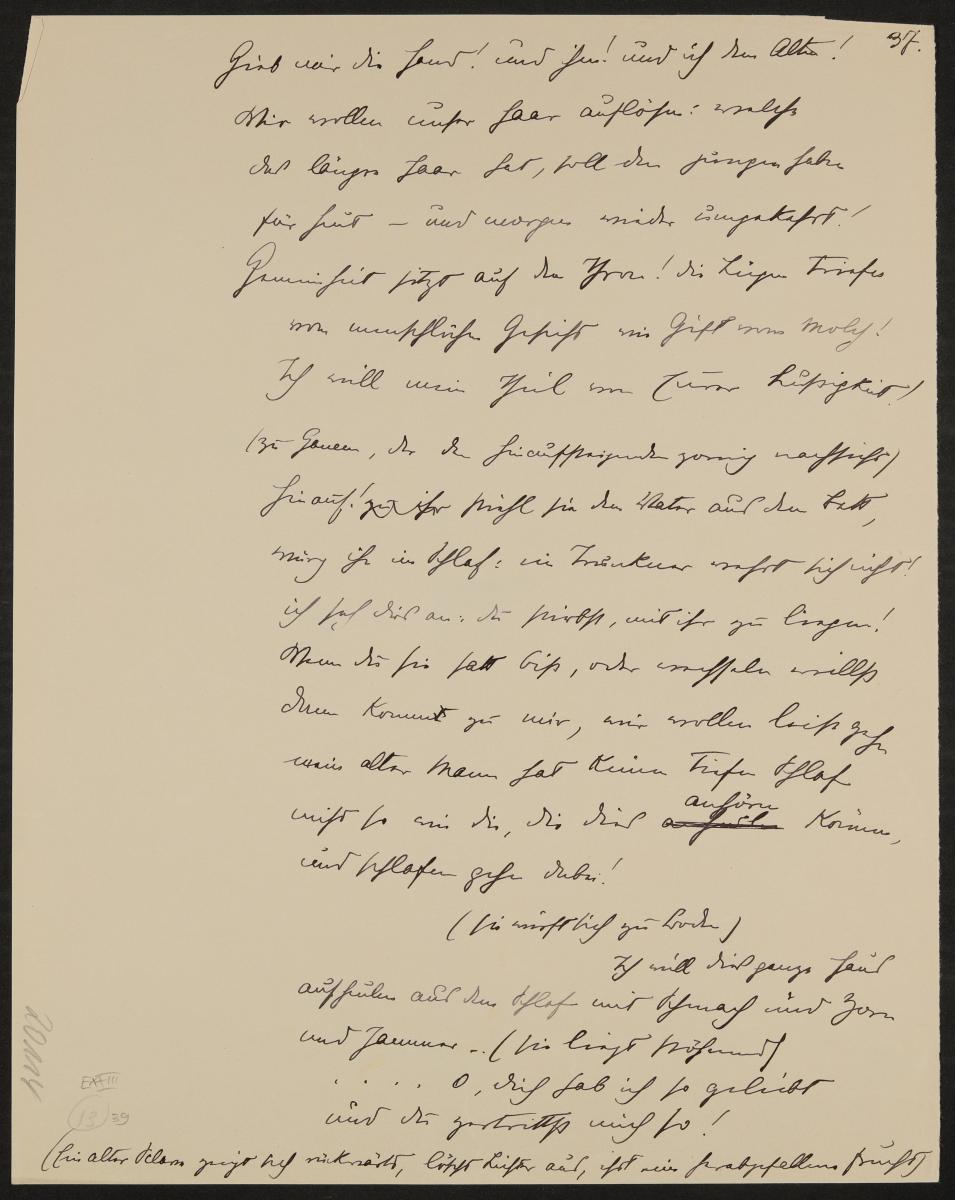 37.
Gieb mir die Hand! und ihm! und ich dem Alten!
Wir wollen unser Haar auflösen: welche
das längre Haar hat, soll den jungen haben
für heut – und morgen wieder umgekehrt!
Gemeinheit sitzt auf dem Thron! die Lügen triefen
vom menschlichen Gesicht wie Gift vom Molch!
Ich will mein Theil von Eurer Lustigkeit!
(zu Ganem, der den Hinaufsteigenden zornig nachsieht)
Hinauf! zu ihr stiehl sie dem Vater aus dem Bett,
würg ihn im Schlaf: ein Trunkner wehrt sich nicht!
ich seh dirs an: du stirbst, mit ihr zu liegen!
Wenn du sie satt bist, oder wechseln willst
dann komm zu mir, wir wollen leise gehn
mein alter Mann hat keinen tiefen Schlaf
nicht so wie die, die dies anhören können,
und schlafen gehn dabei!
(sie wirft sich zu Boden)
Ich will dies ganze Haus
aufheulen aus dem Schlaf mit Schmach und Zorn
und Jammer .. (sie liegt stöhnend)
. . . . O, dich hab ich so geliebt
und du zertrittst mich so!
(Ein alter Sclave zeigt sich rückwärts, löscht Lichter aus, isst eine herabgefallene Frucht)
E XIII
13 39